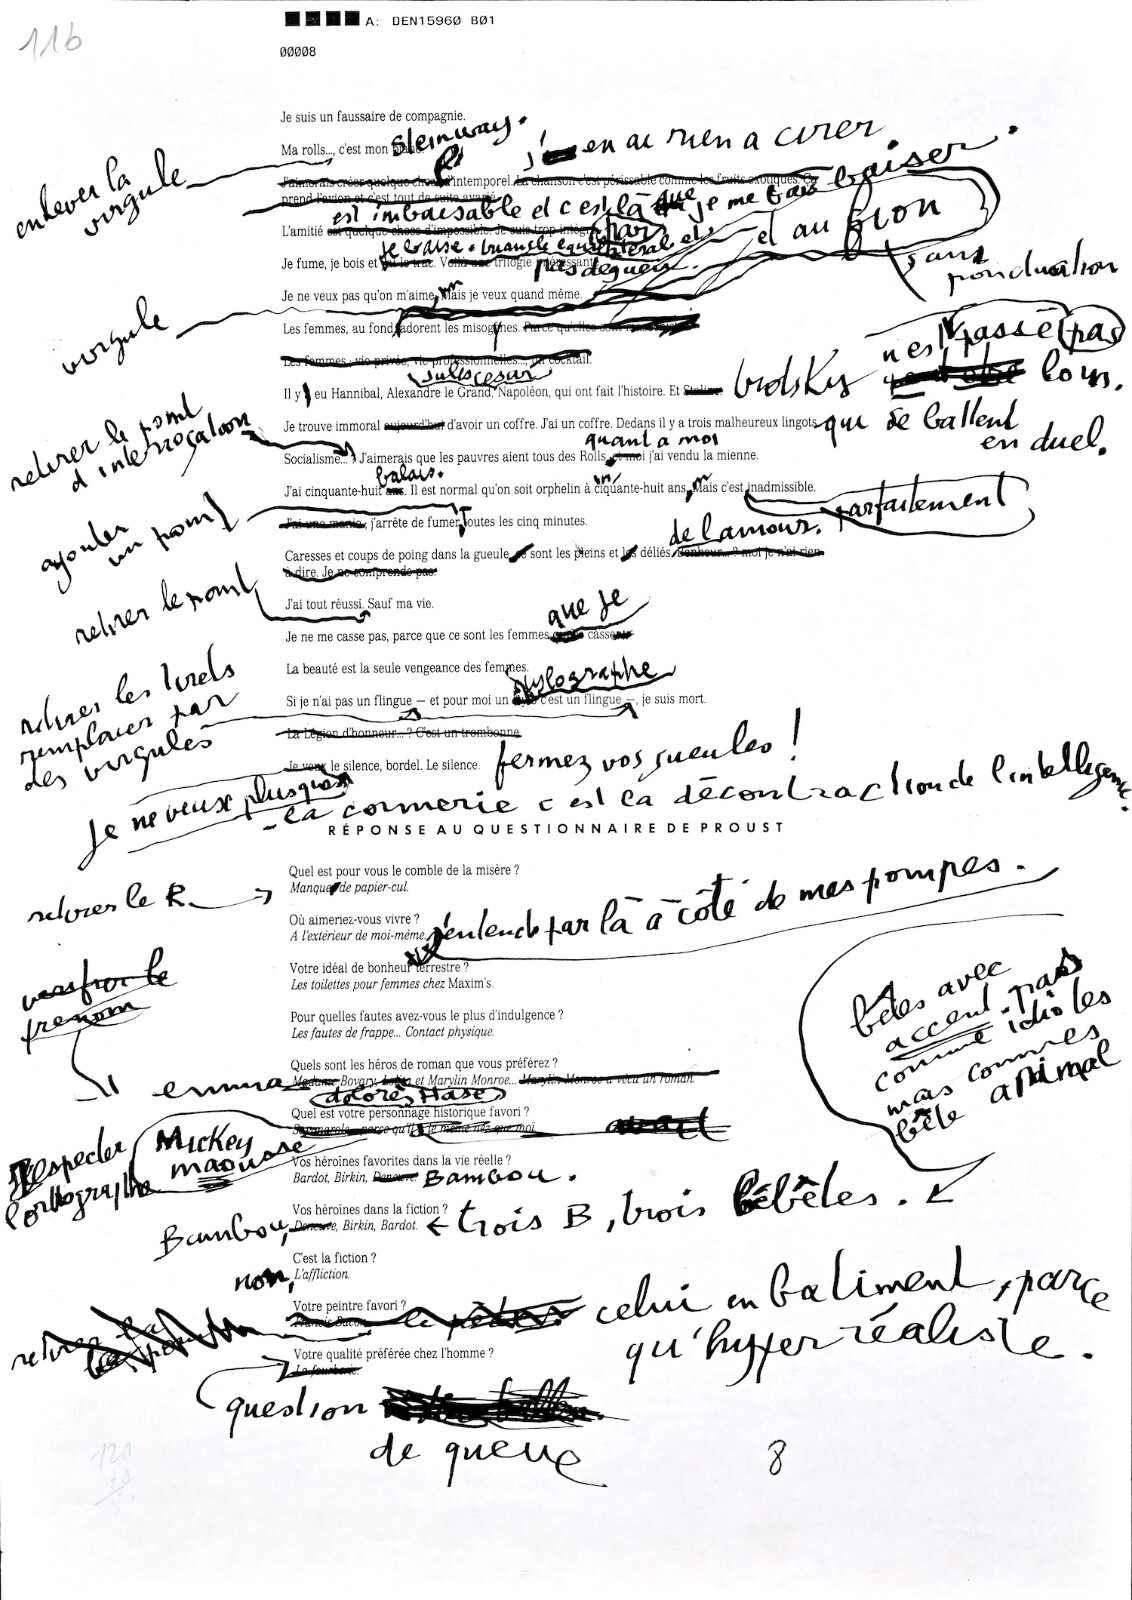 116
A: DEN15960 B01
00008
Je suis un faussaire de compagnie.
steinway.
Ma rolls..., c'est mon
j' en ai rien a cirer
enlever la
virgule
J'aimerais créer quelque chose d'intemporel. La chanson c'est périssable comme les fruits exotiques. Ça
prend l'avion et c'est tout de suite avarié.
est imbaisable et c'est là que je me fais baiser.
L'amitié est quelque chose d'impossible. Je suis trop intègre
par et au fion
je baise. triangle equilateral et
Je fume, je bois et Voilà une trilogie intéressante
pas dégueu.
sans
ponctuation
Je ne veux pas qu'on m'aime, Mais je veux quand même.
m
virgule
Les femmes, au fond adorent les misogynes. Parce qu'elles sont
n'est passé pas
Les femmes : vie privée, vie professionnelle..., un cocktail.
Jules cesar
Il y eu Hannibal, Alexandre le Grand, Napoléon, qui ont fait l'histoire. Et Staline. trotsKy loin.
retirer le point
d'interrogation
Je trouve immoral aujourd'hui d'avoir un coffre. J'ai un coffre. Dedans il y a trois malheureux lingots qui se battent
en duel.
quant a moi
Socialisme... ? J'aimerais que les pauvres aient tous des Rolls, et moi j'ai vendu la mienne.
balais.
J'ai cinquante-huit ans. Il est normal qu'on soit orphelin à cinquante-huit ans, Mais c'est inadmissible.
m
parfaitement
ajouter
un point
J'ai une manie, j'arrête de fumer Toutes les cinq minutes.
de l'amour.
Caresses et coups de poing dans la gueule, sont les pleins et les déliés. Bonheur... ? moi je n'ai rien
à dire. Je ne comprends pas.
retirer le point
J'ai tout réussi. Sauf ma vie.
que je
Je ne me casse pas, parce que ce sont les femmes cassent
La beauté est la seule vengeance des femmes.
retirer les tirets
remplacer par
des virgules
stylographe
Si je n'ai pas un flingue — et pour moi un c'est un flingue —, je suis mort.
La Légion d'honneur... ? C'est un trombonne
Je veux le silence, bordel. Le silence. fermez vos gueules !
Je ne veux plus que
- La connerie c'est la décontraction de l'intelligence.
RÉPONSE AU QUESTIONNAIRE DE PROUST
Quel est pour vous le comble de la misère ?
retirer le R
Manquer de papier-cul.
Où aimeriez-vous vivre ?
A l'extérieur de moi-même. j'entends par là à côté de mes pompes.
Votre idéal de bonheur terrestre ?
Les toilettes pour femmes chez Maxim's.
Pour quelles fautes avez-vous le plus d'indulgence ?
Les fautes de frappe... Contact physique.
bêtes avec
accent. pas
comme idiotes
mais comme
bête animal
prenom
Quels sont les héros de roman que vous préférez ?
emma
Madame Bovary, Lolita et Marylin Monroe... Marylin Monroe a vécu un roman.
dolorès Haze
Quel est votre personnage historique favori ?
Sganarelle parce qu'il a le même nez que moi.
Respecter
l'orthographe
Mickey
maousse
Vos héroïnes favorites dans la vie réelle ?
Bardot, Birkin, Deneuve. Bambou.
Vos héroïnes dans la fiction ?
Bambou, Deneuve, Birkin, Bardot. ← trois B, trois bêbêtes.
C'est la fiction ?
non, L'affliction.
Votre peintre favori ?
Francis Bacon
celui en batiment, parce
qu'hyper réaliste.
retirer la
Votre qualité préférée chez l'homme ?
La fourberie.
question
de queue
8
120